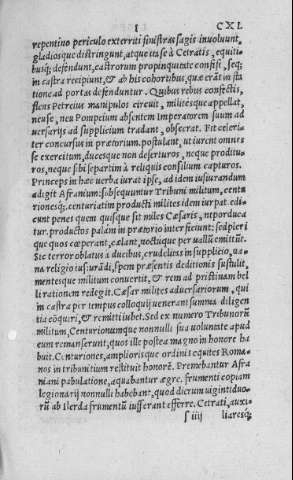 I CXL
repentino periculo exterriti sinistras sagis inuoluunt,
gladiosque distringunt, atque ita se à Cetratis, equiti-
busq; defendunt, castrorum propinquitate confisi, seq;
in castra recipiunt, & ab his cohortibus, quæ erāt in sta
tione ad portas defenduntur. Quibus rebus confectis,
flens Petreius manipulos circuit, militesque appellat,
neu se, neu Pompeium absentem Imperatorem suum ad
uersarijs ad supplicium tradant, obsecrat. Fit celeri-
ter concursus in prætorium. postulant, ut iurent omnes
se exercitum, ducesque non deserturos, neque prodítu
ros, neque sibi separtim à reliquis consilium capturos.
Princeps in hæc uerba iurat ipse, ad idem iusiurandum
adigit Afranium: subsequuntur Tribuni militum, centu
rionesq;. centuriatim producti milites idem iurāt. edi-
cunt penes quem quisque sit miles Cæsaris, ut produca
tur. productos palàm in prætorio interficiunt: sed pleri
que quos cœperant, cælant, noctuque per uallū emittūt.
Sic terror oblatus à ducibus, crudelitas in supplicio, no-
na religio iusiurādi, spem præsentis deditionis sustulit,
mentesque militum conuertit, & rem ad pristinam bel
li rationem redegit. Cæsar milites aduersariorum, qui
in castra per tempus colloquij uenerant summa diligen
tia cōquiri, & remitti iubet. Sed ex numero Tribunorū
militum, Centurionumque nonnulli sua uoluntate apud
eum remanserunt, quos ille postea magno in honore ha
buit. Cēturiones, ampliorisque ordinis equites Roma-
nos in tribunitium restituit honorē. Premebantur Afra
niani pabulatione, aquabantur ægre. frumenti copiam
legionarij nonnulli habebant, quod dierum uigintiduo-
rū ab Ilerda frumentū iussерant efferre. Cetrati, auxi-
s iiij liaresq;